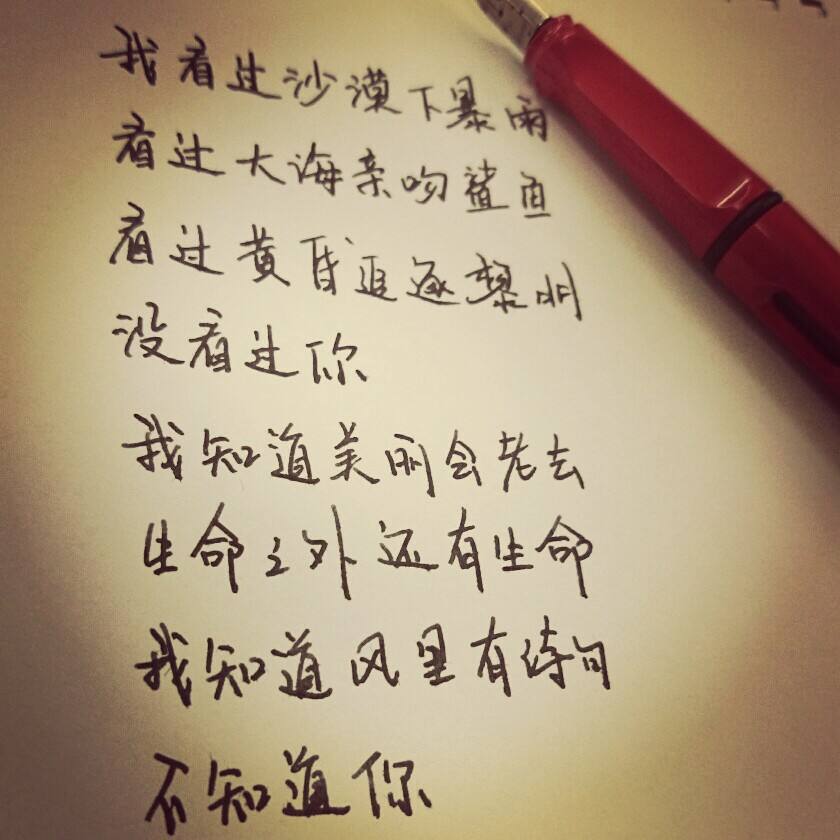 我看过沙漠下暴雨
看过大海亲吻鲨鱼
看过黄昏追逐黎明
没看过你
我知道美丽会老去
生命之外还有生命
我知道风里有诗句
不知道你